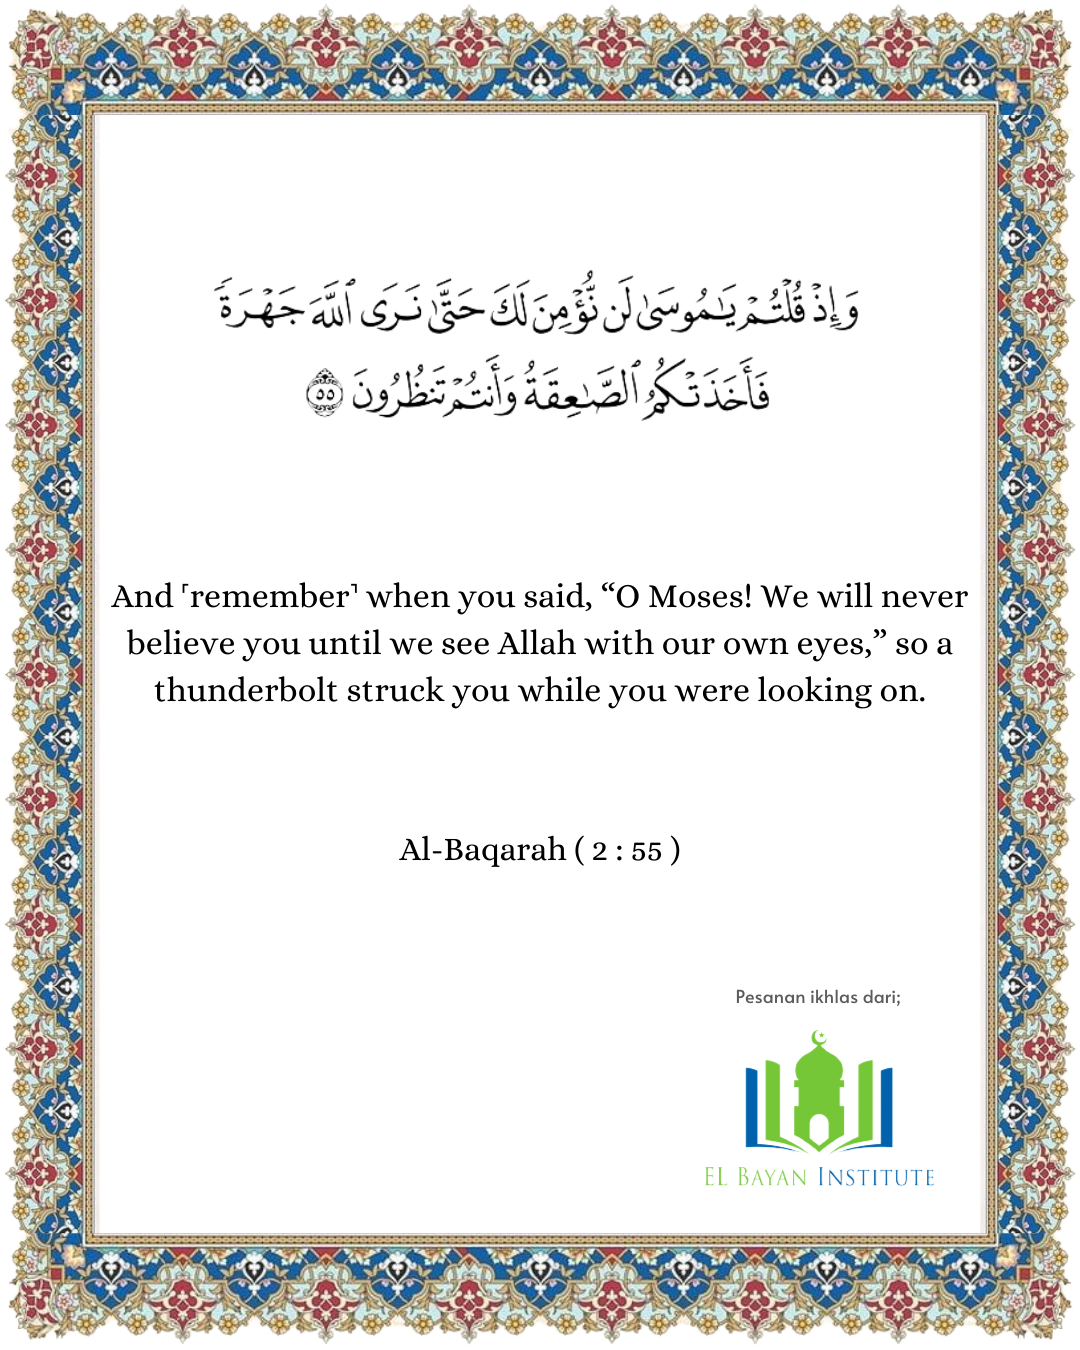 وَإِذْ قُلْتُمْ يَـٰمُوسَىٰ لَن نُّؤْمِنَ لَكَ حَتَّىٰ نَرَى ٱللَّهَ جَهْرَةً
فَأَخَذَتْكُمُ ٱلصَّـٰعِقَةُ وَأَنتُمْ تَنظُرُونَ ٥٥
And ˹remember˺ when you said, “O Moses! We will never
believe you until we see Allah with our own eyes,” so a
thunderbolt struck you while you were looking on.
Al-Baqarah ( 2 : 55 )
Pesanan ikhlas dari;
EL BAYAN INSTITUTE